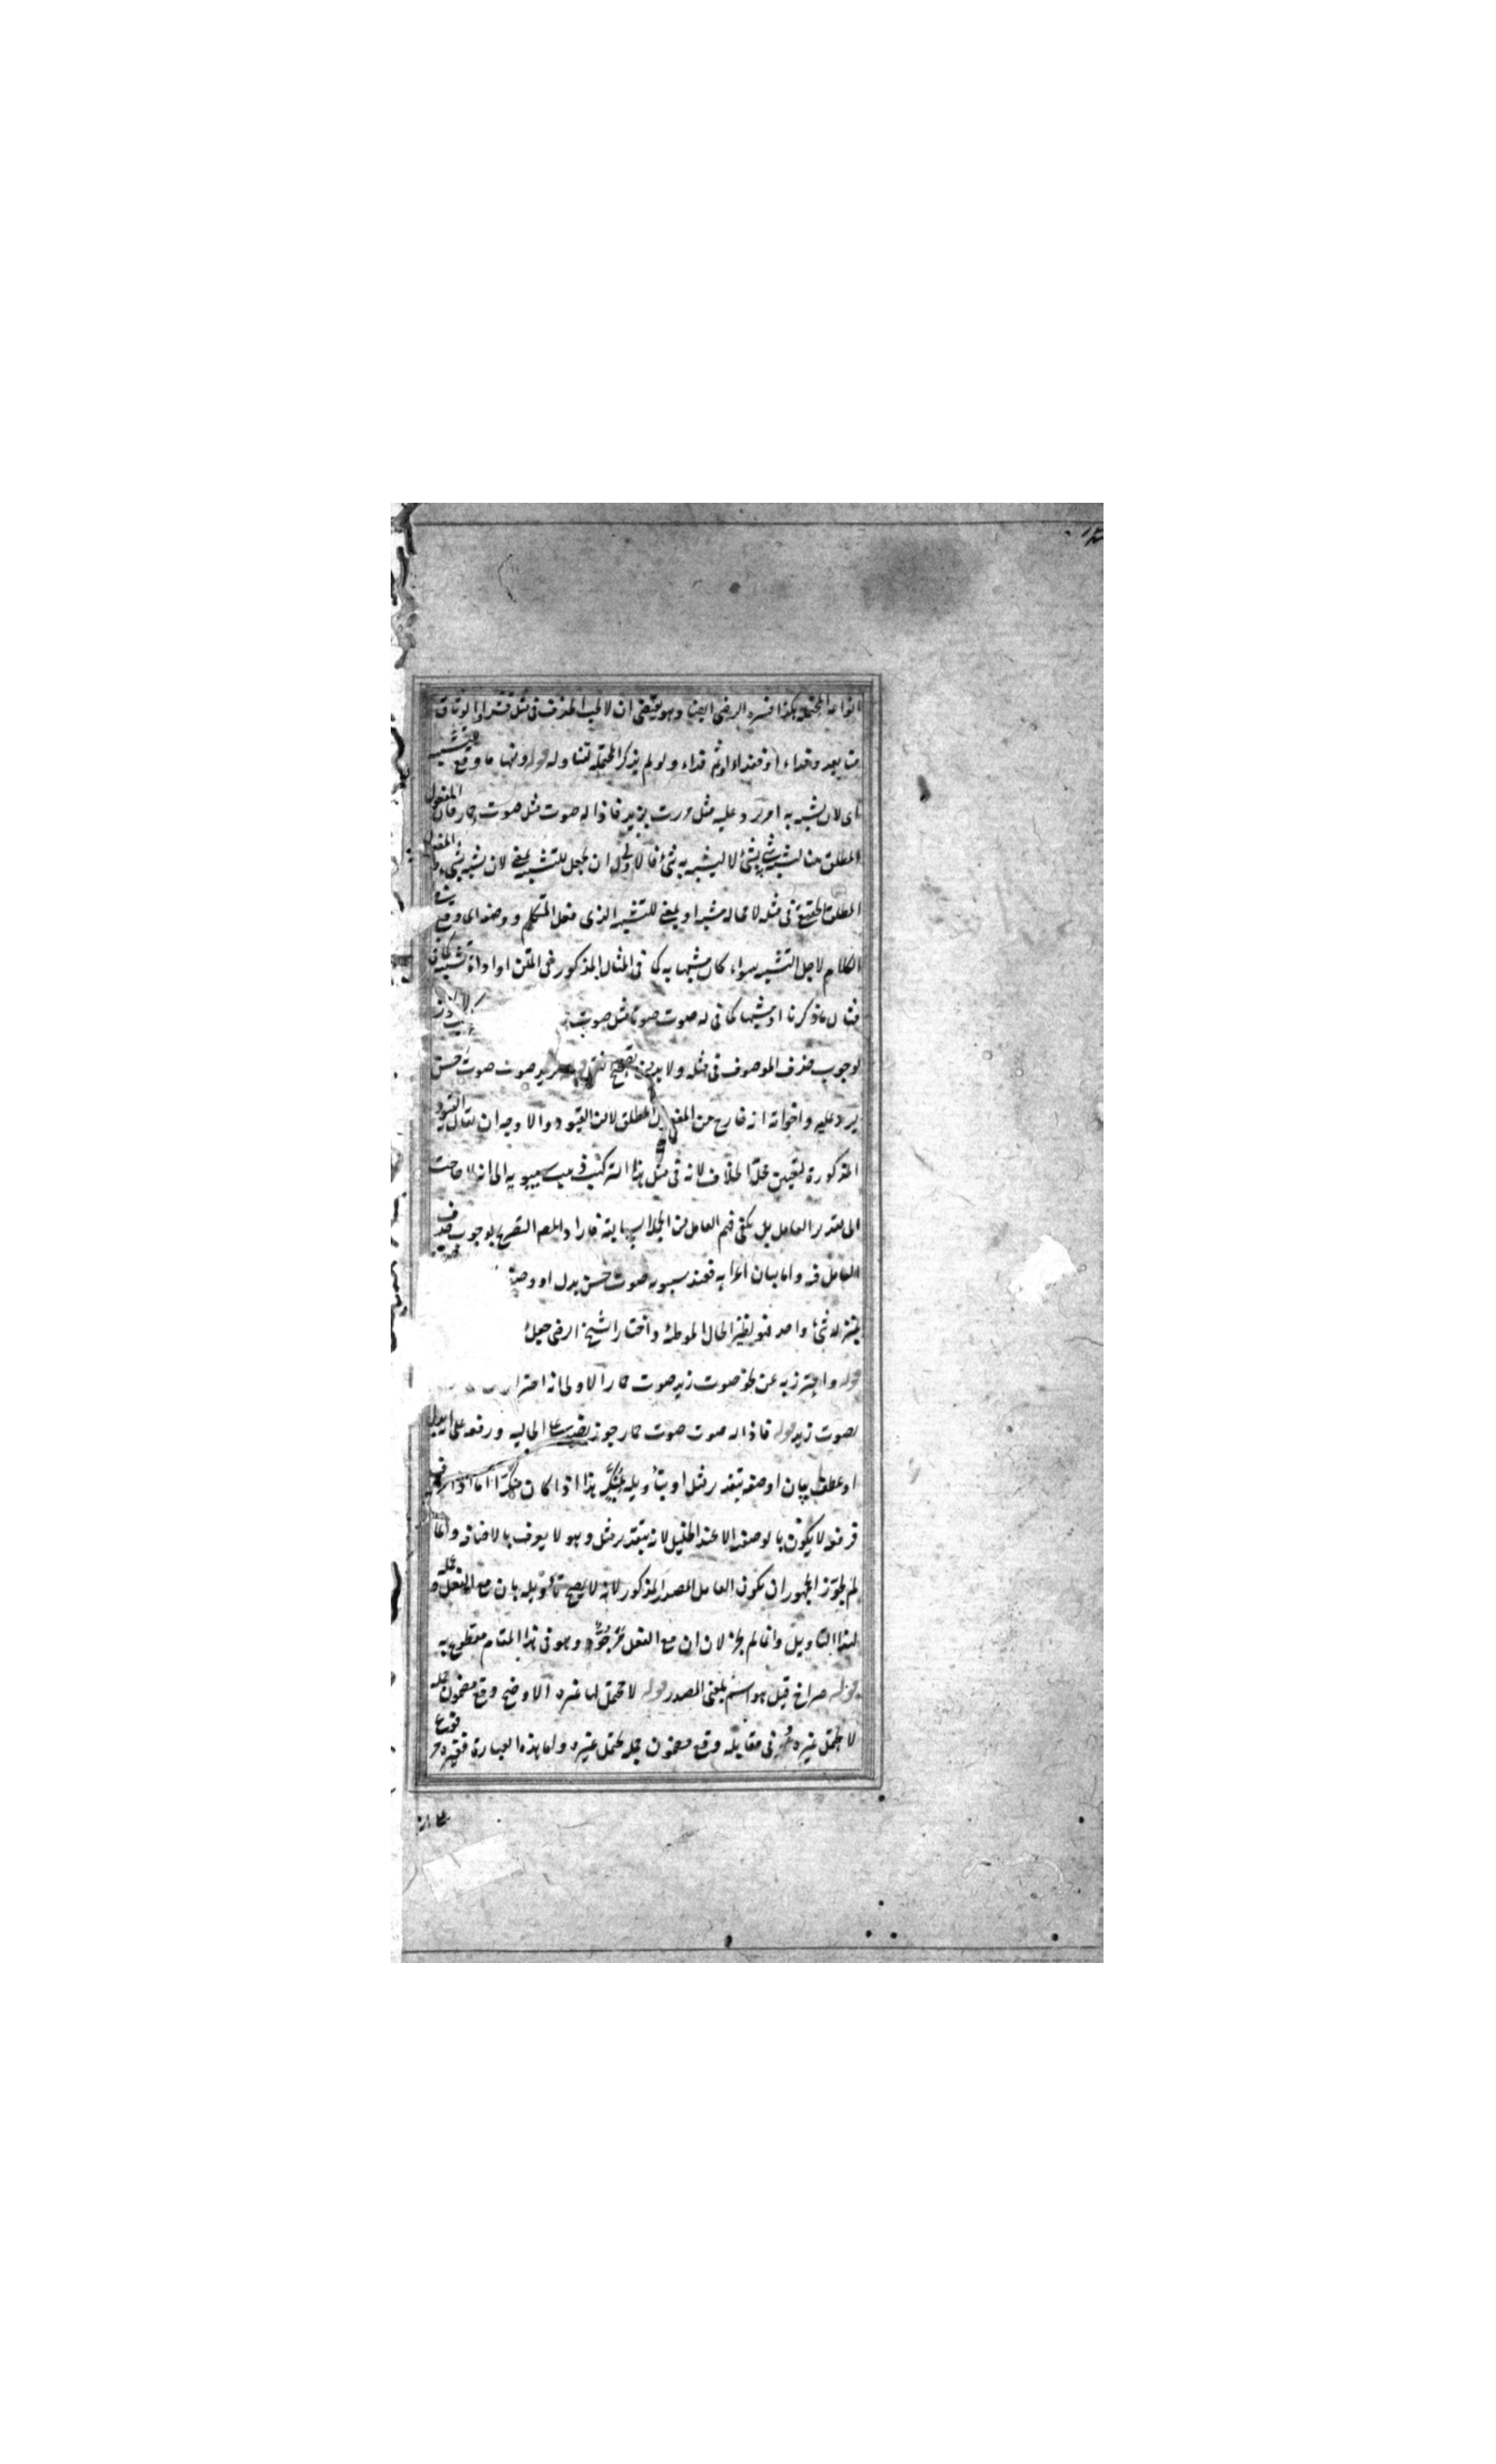 انواعه المحتملة هكذا فسره الرضى ايضا وهو يقتضى ان لا يجب الحذف فى مثل فشدوا الوثاق
منا بعد وفداء او فنداء اوثم فداء ولو لم يذكر المحتملة لتناوله قوله ومنها ما وقع للتشبيه
اى لان يشبه به امر يرد عليه مثل مررت بزيد فاذا له صوت مثل صوت حمار فان المفعول
المطلق هنا لتشبيه شئ بشئ لا ليشبه به شئ فالاولى ان يجعل للتشبيه بمعنى لان يشبه بشئ والمفعول
المطلق الحقيقى فى مثله لا محالة مشبه او بمعنى للتشبيه الذى فعل المتكلم ووصفه اى وقع فى
الكلام لاجل التشبيه سواء كان مشبها به كما فى المثال المذكور فى المتن او اداة تشبيه كما فى
مثال ما ذكرنا او مشبها كما فى له صوت صوتا مثل صوت
لوجوب حذف الموصوف فى مثله ولا بد من تصحيح صوت صوت حسن
يرد عليه واخواته انه خارج من المفعول المطلق لا من القيود والاوجه ان يقال القيود
المذكورة لتعيين محل الخلاف لانه فى مثل هذا التركيب ذهب سيبويه الى انه لا حاجة
الى تقدير العامل بل يكفى فهم العامل من الجملة السابقة فاراد المص التصريح بوجوب حذف
العامل فيه واما بيان اعرابه فعند سيبويه صوت حسن بدل او وصف
بمنزلة شئ واحد فهو نظير الحال الموطئة واختار الشيخ الرضى جعله
قوله واحترز به عن نحو صوت زيد صوت حمار الاولى انه احتراز
لصوت زيد قوله فاذا له صوت صوت حمار جوز نصبه على الحالية ورفعه على البدل
او عطف بيان او صفة بتقدير مثل او بتأويله بمنكر هذا اذا كان منكرا اما اذا عرف
فرفعه لا يكون بالوصفية الا عند الخليل لانه بتقدير مثل وهو لا يعرف بالاضافة وانما
لم يجوز الجمهور ان يكون العامل المصدر المذكور لانه لا يصح تأويله بان مع الفعل
لهذا التاويل وانما لم يجز لان ان مع الفعل وهو فى هذا المقام مقطوع به
قوله صراخ قيل هو اسم بمعنى المصدر قوله لا محتمل لها غيره الاوضح وقع مضمون جملة
لا يحتمل غيره فى مقابلة وقع مضمون جملة يحتمل غيره واما هذه العبارة